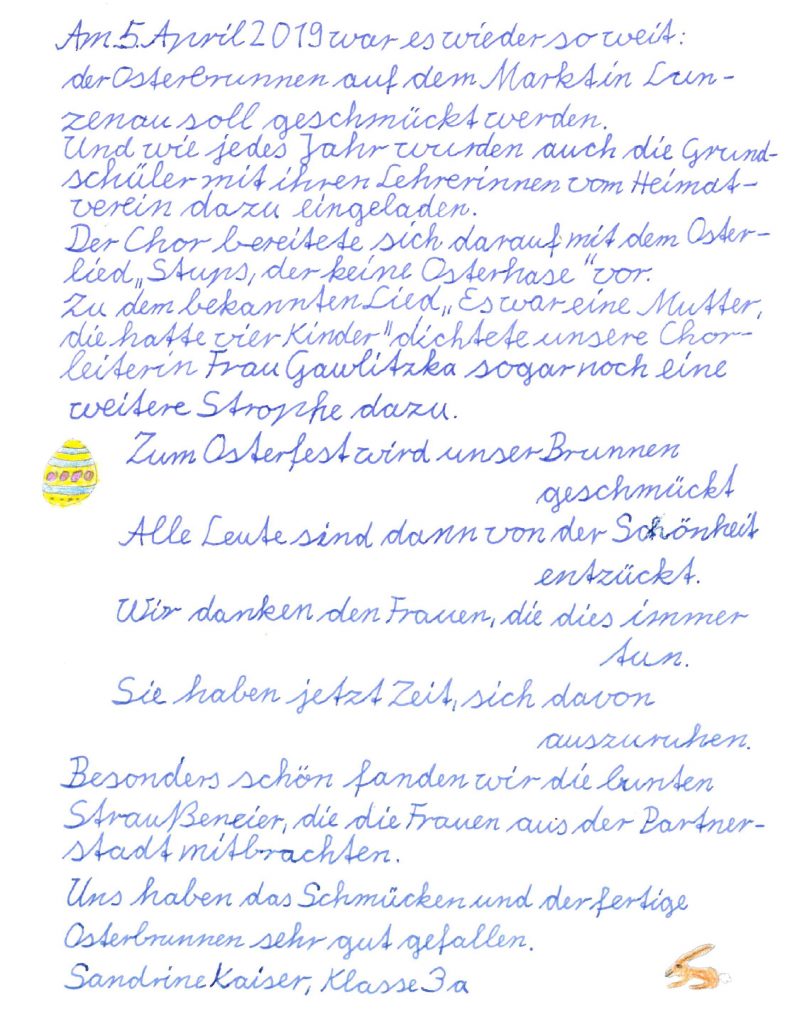 Am 5. April 2019 war es wieder so weit:
der Osterbrunnen auf dem Markt in Lun-
zenau soll geschmückt werden.
Und wie jedes Jahr wurden auch die Grund-
schüler mit ihren Lehrerinnen vom Heimat-
verein dazu eingeladen.
Der Chor bereitete sich darauf mit dem Oster-
lied „Stups, der keine Osterhase" vor.
Zu dem bekannten Lied „Es war eine Mutter,
die hatte vier Kinder" dichtete unsere Chor-
leiterin Frau Gawlitzka sogar noch eine
weitere Strophe dazu.
Zum Osterfest wird unser Brunnen
geschmückt
Alle Leute sind dann von der Schönheit
entzückt.
Wir danken den Frauen, die dies immer
tun.
Sie haben jetzt Zeit, sich davon
auszuruhen.
Besonders schön fanden wir die bunten
Straußeneier, die die Frauen aus der Partner-
stadt mitbrachten.
Uns haben das Schmücken und der fertige
Osterbrunnen sehr gut gefallen.
Sandrine Kaiser, Klasse 3a